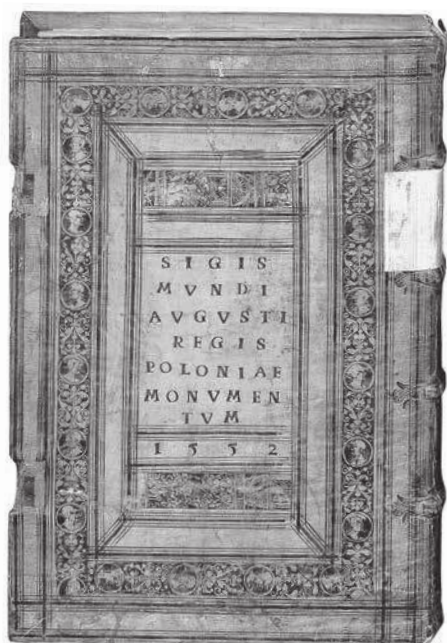 SIGIS
MVNDI
AVGVSTI
REGIS
POLONIAE
MONVMEN
TVM
1552